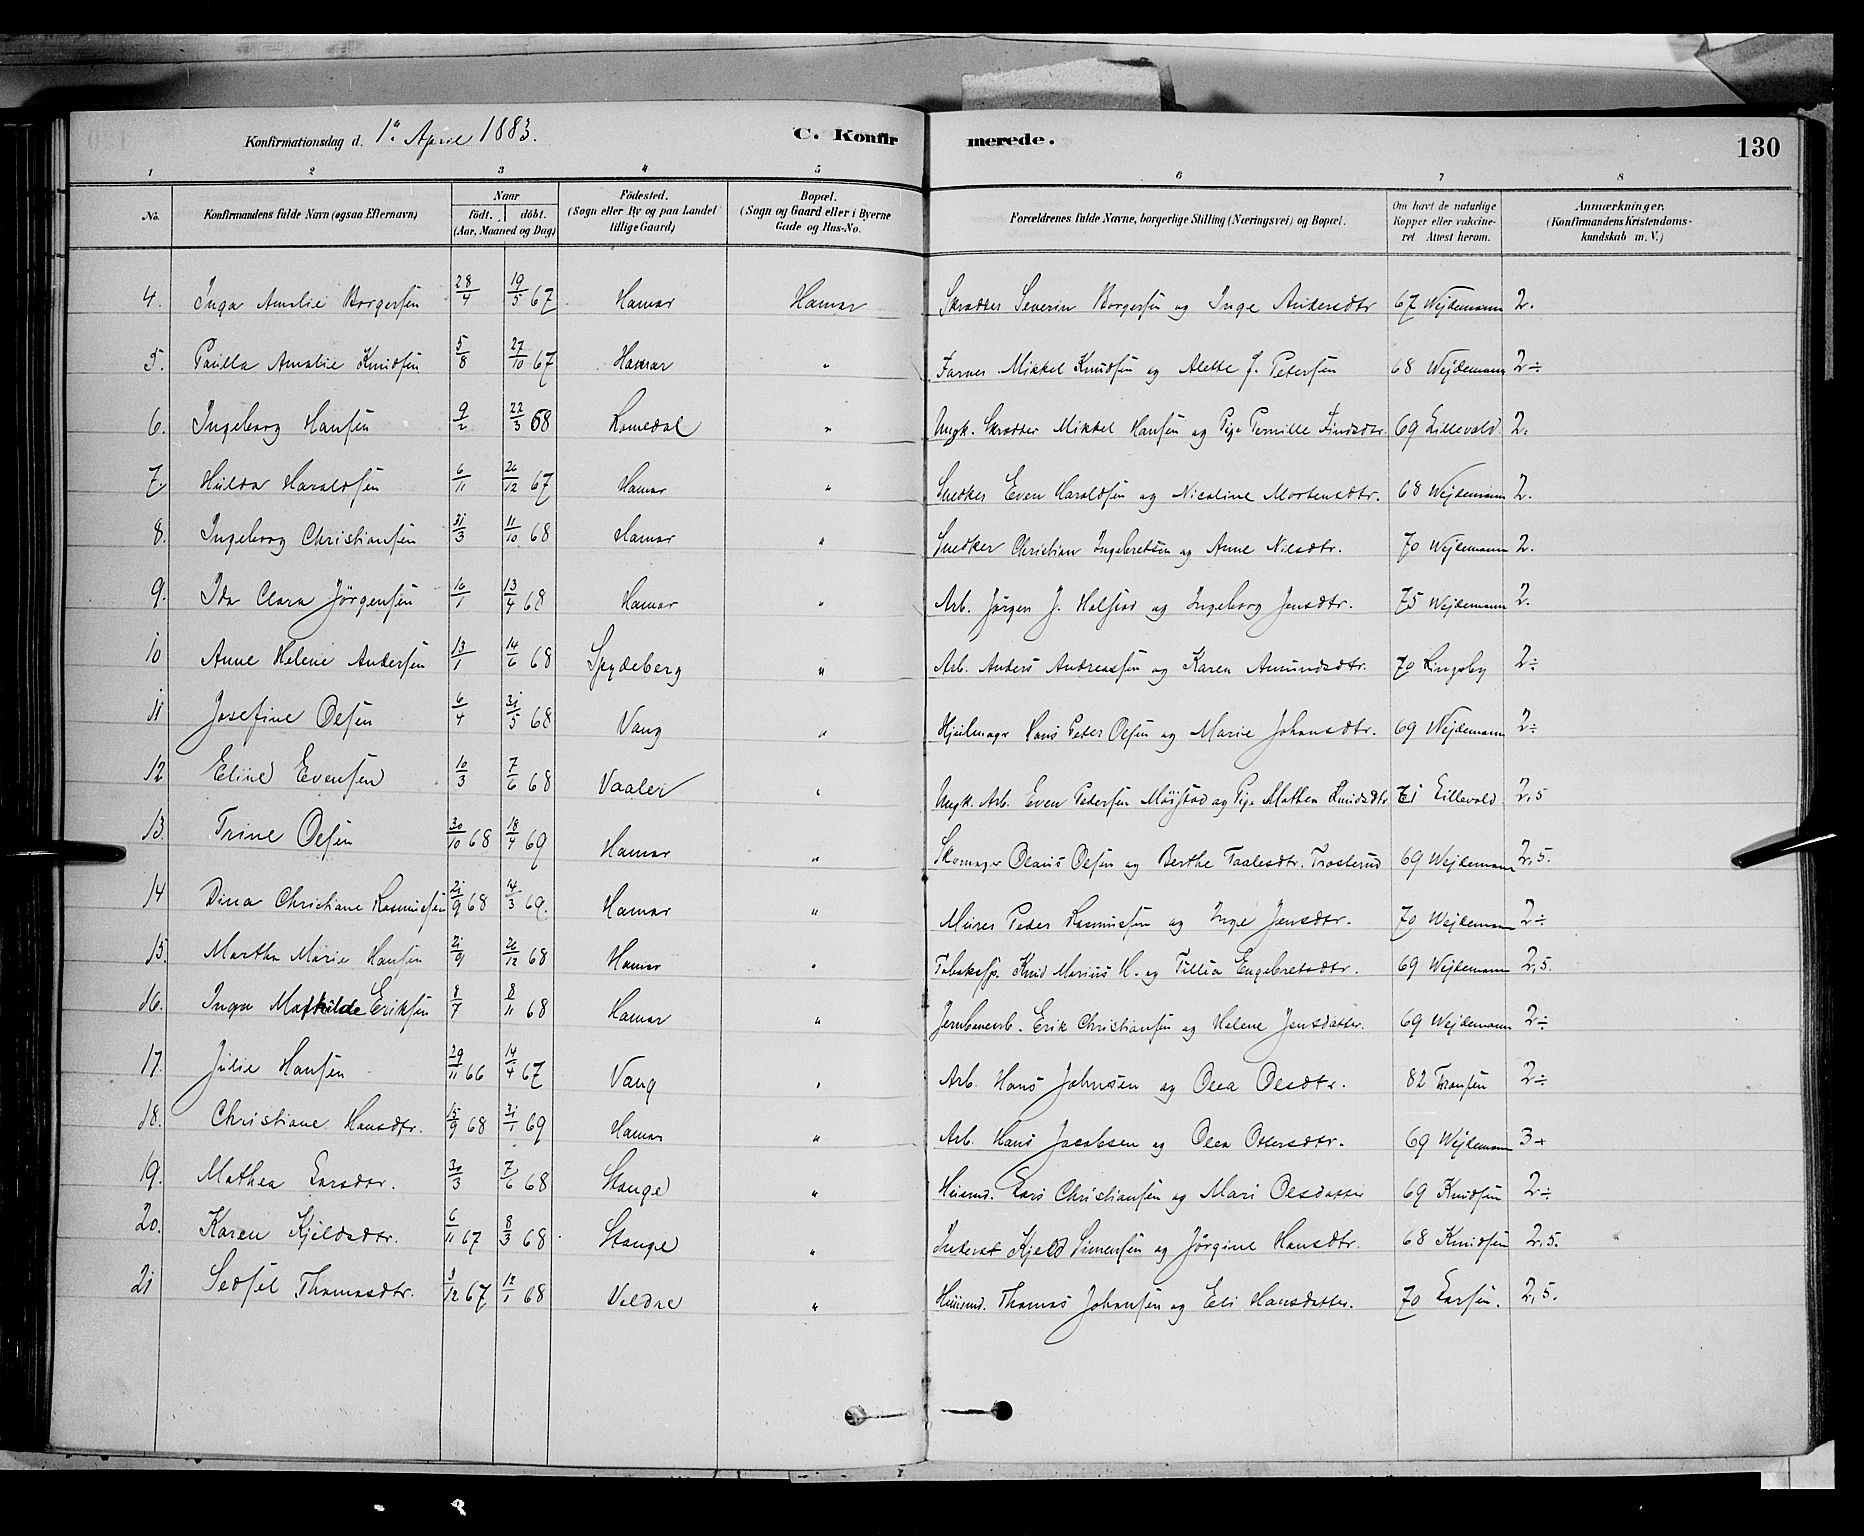 Konfirmationsdag d. 1ste April 1883. C. Konfirmerede. 130
1 2 3 4 5 6 7 8
No. Konfirmandens fulde Navn (ogsaa Efternavn) Naar født. døbt. (Aar, Maaned og Dag) Fødested. (Sogn eller By og paa Landet tillige Gaard) Bopæl. (Sogn og Gaard eller i Byerne Gade og Hus-No. Forældrenes fulde Navne, borgerlige Stilling (Næringsvei) og Bopæl. Om havt de naturlige Kopper eller vakcineret Attest herom. Anmærkninger. (Konfirmandens Kristendomskundskab m. V.)
4. Inga Amalie Borgersen 28/4 19/5 67 Hamar Hamar Skrædder Severin Borgersen og Inge Andersdtr 67 Wejdemann 2.
5. Paulla Amalie Knudsen 5/8 27/10 67 Hamar " Farver Mikkel Knudsen og Alette J. Petersen 68 Wejdemann 2÷
6. Ingeborg Hansen 9/2 22/3 68 Romedal " Ungk. Skrædder Mikkel Hansen og Pige Pernille Findsdtr. 69 Lillevold. 2.
7. Hulda Haraldsen 6/11 26/12 67 Hamar " Snedker Even Haraldsen og Nicoline Mortensdtr. 68 Wejdemann 2.
8. Ingeborg Christiansen 31/3 11/10 68 Hamar " Snedker Christian Ingebretsen og Anne Nilsdtr. 70 Wejdemann 2.
9. Ida Clara Jørgensen 10/1 13/4 68 Hamar " Arb. Jørgen J. Halstad og Ingeborg Jensdtr. 75 Wejdemann 2.
10 Anne Helene Andersen 13/1 14/6 68 Spydeberg " Arb. Anders Andreassen og Karen Amundsdtr. 70 Lingsby 2÷
11 Josefine Olsen 6/4 31/5 68 Vang " Hjulmagr Hans Peter Olsen og Marie Johansdtr. 69 Wejdemann 2÷
12 Eline Evensen 10/3 7/6 68 Vaaler " Ungk. Arb. Even Pedersen Møistad og Pige Mathea Knudsdtr 71 Lillevold. 2,5
13. Trine Olsen 30/10 68 18/4 69 Hamar " Skomager Olaus Olsen og Berthe Paalesdtr. Trosterud 69 Wejdemann 2,5.
14 Dina Christiane Rasmussen 21/9 68 14/3 69. Hamar " Murer Peder Rasmussen og Inge Jensdtr. 70 Wejdemann 2÷
15. Martha Marie Hansen 21/9 26/12 68 Hamar " Tobaksp. Knud Marius H. og Tillia Engebretsdtr. 69 Wejdemann 2,5.
16. Inga Mathilde Eriksen 8/7 8/11 68 Hamar " Jernbanearb. Erik Christiansen og Helene Jensdatter. 69 Wejdemann 2÷
17. Julie Hansen 29/11 66 14/4 67 Vang " Arb. Hans Johnsen og Olea Olsdtr. 82 Thransen 2÷
18. Christiane Hansdtr. 15/9 68 31/1 69 Hamar " Arb. Hans Jacobsen og Olea Ottersdtr. 69 Wejdemann 3+
19. Mathea Larsdtr. 30/3 7/6 68 Stange " Husmd. Lars Christiansen og Mari Olsdatter 69 Knudsen 2÷
20. Karen Kjeldsdtr. 6/11 67 8/3 68 Stange " Inderst Kjeld Simensen og Jørgine Hansdtr. 68 Knudsen 2,5.
21 Sedsel Thomasdtr. 3/12 67 12/1 68 Veldre " Husmd. Thomas Johansen og Eli Hansdatter. 70 Larsen. 2,5.